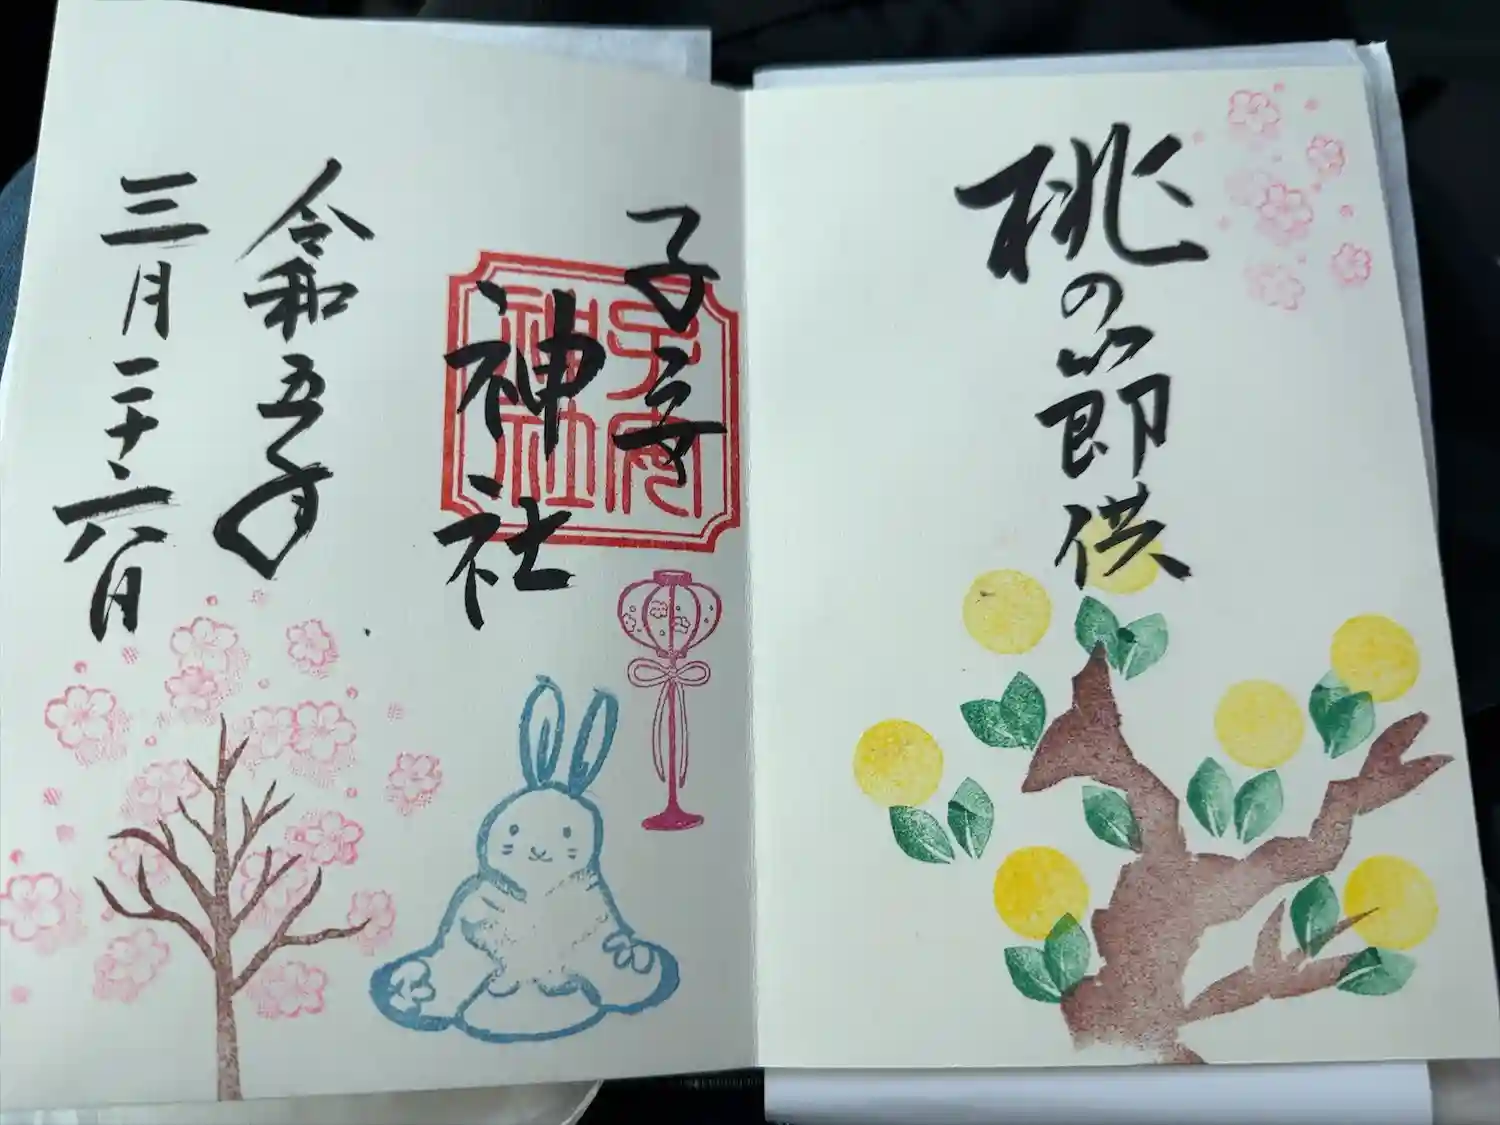 桃の節供
子安
神社
子安
神社
令和五年
三月二十六日